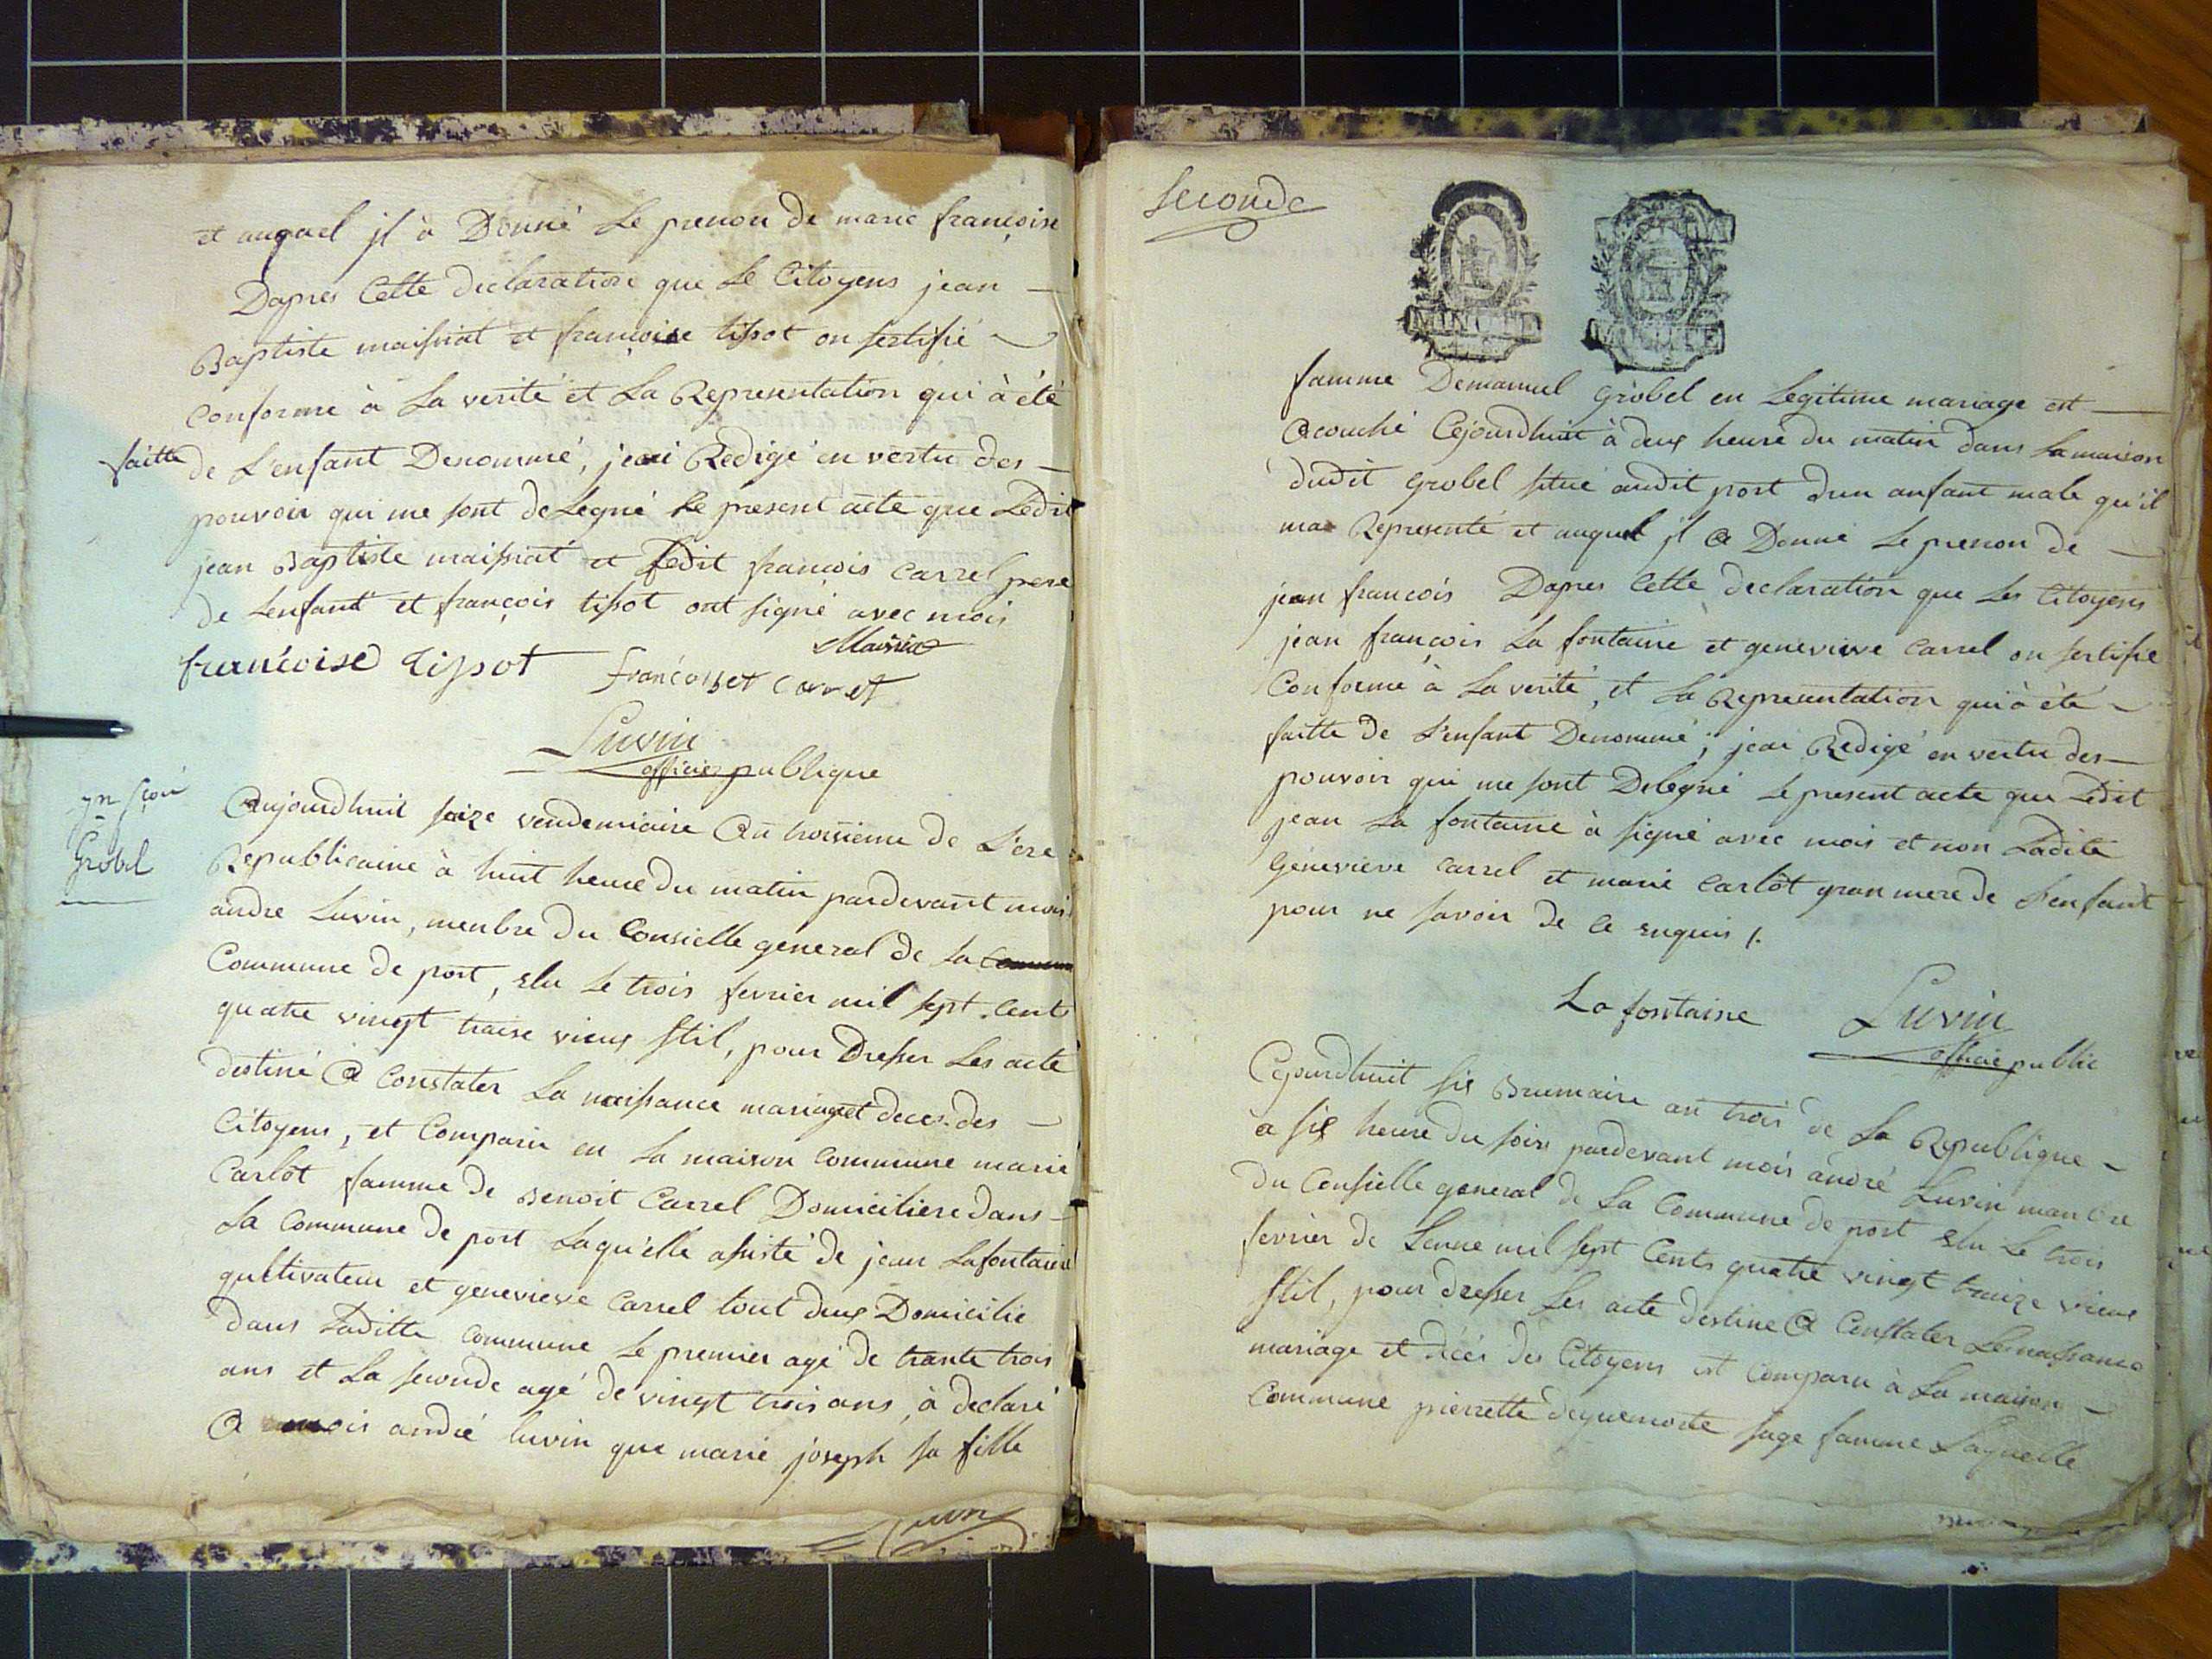 et auquel jl à Donné Le prenon de marie françoise
Dapres Cette declaration que Le Citoyens jean
Baptiste maissiat et francoise tissot on sertifié
conforme à La verité et La Representation qui à été
faitte de L'enfant Denommé, jeai Redigé en vertu des
pouvoir qui me sont deLegué Le present acte que Ledit
jean Baptiste maissiat et Ledit francois Carrel pere
de Lenfant et françois tissot ont signé avec mois
francoise tissot francoiset Carret Maissiat
Luvin
officier publique
jn fçoi
Grobel
Aujourdhuit saize vendemiaire An troisieme de L'ere
Republicaine à huit heure du matin pardevant mois
andre Luvin, menbre du Consielle general de La
Commune de port, elu Le trois fevrier mil sept. Cents
quatre vingt traise vieux stil, pour Dresser Les acte
destiné A Constater La naissance mariage et deces des
Citoyens, et Comparu en La maison Commune marie
Carlot famme de Benoit Carrel Domiciliere dans
La Commune de port Laqu'elle assisté de jean Lafontaine
qultivateur et genevieve Carrel tout deux Domicilie
dans Laditte Commune Le premier agé de trante trois
ans et La seconde agé de vingt trois ans, à declaré
A mois andré luvin que marie joseph sa fille
Luvin
Seconde
MINUTE
MINUTE
famme Demanuel Grobel en Legitime mariage est
Acouché Cejourdhuit à deux heure du matin dans La maison
dudit Grobel situé audit port dun anfant male qu'il
ma Representé et auquel jl A Donné Le prenon de
jean francois Dapres Cette declaration que Les Citoyens
jean francois La fontaine et genevieve Carrel on sertifie
Conforme à La verité, et La Representation qui à été
faitte de L'enfant Denommé; jeai Redigé en vertu des
pouvoir qui me sont Delegué Le present acte que Ledit
jean La fontaine à signé avec mois et non Ladite
Genevieve Carrel et marie Carlot gran mere de L'enfant
pour ne savoir de Ce enquis /.
La fontaine Luvin
officie public
Cejourdhuit six Brumaire an trois de La Republique
a six heure du soir pardevant mois andré Luvin manbre
du Consielle general de La Commune de port elu Le trois
fevrier de Lanne mil sept Cents quatre vingt traize vieux
stil, pour dresser Les acte destine A Constater Les naissance
mariage et décés des Citoyens est Comparu à La maison
Commune pierrette dequemorte sage famme Laquelle